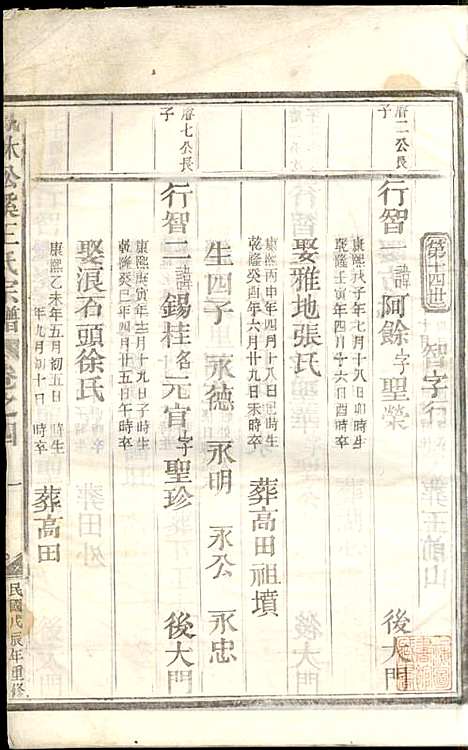 第十四世
智字行
唇二公長子
行智一諱阿餘字聖榮
後大門
康熙戊子年七月十八日卯時生
乾隆壬寅年四月十六日酉時卒
娶雅地張氏
康熙丙申年四月十八日巳時生
乾隆癸酉年六月廿九日未時卒
葬高田祖墳
生四子
永德
永明
永公
永忠
唇七公長子
行智二諱錫桂名元官字聖珍
後大門
康熙庚寅年十二月十九日子時生
乾隆癸巳年四月廿五日午時卒
娶浪石頭徐氏
康熙乙未年五月初五日時生
年九月初十日時卒
葬高田
王氏宗譜
卷之四
一
民國戊辰年重修